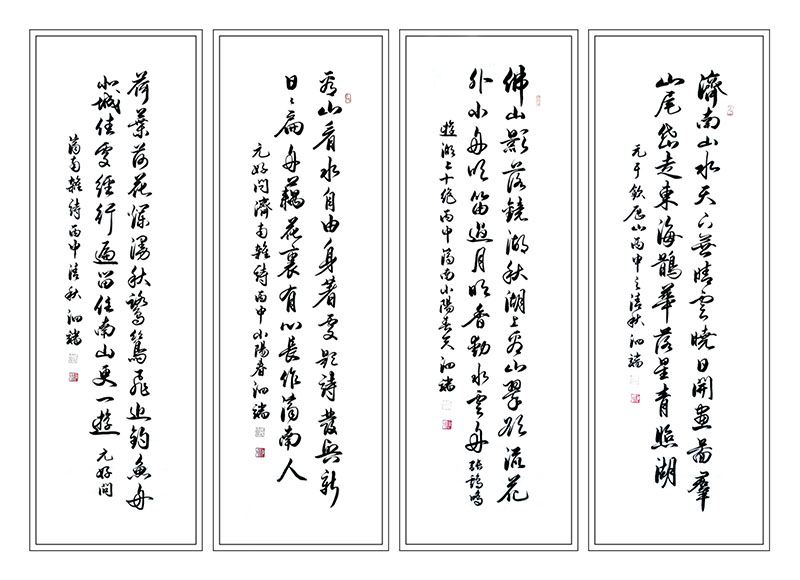 濟南山水天下無晴雲曉日開畫圖羣
山尾岱走東海鵲華落星青照湖
元于欽歷山丙申之清秋泗瑞
佛山影落鏡湖秋湖上看山翠欲流花
外小舟吹笛過月明香動水雲舟張鶴鳴
遊湖上十絕丙申濟南小陽春天泗瑞
看山看水自由身著處題詩發興新
日〻扁舟藕花裏有心長作濟南人
元好問濟南雜詩丙申小陽春泗瑞
荷葉荷花爛漫秋鷺鷥飛近釣魚舟
北城佳處經行遍留住南山更一遊元好問
濟南雜詩丙申清秋泗瑞